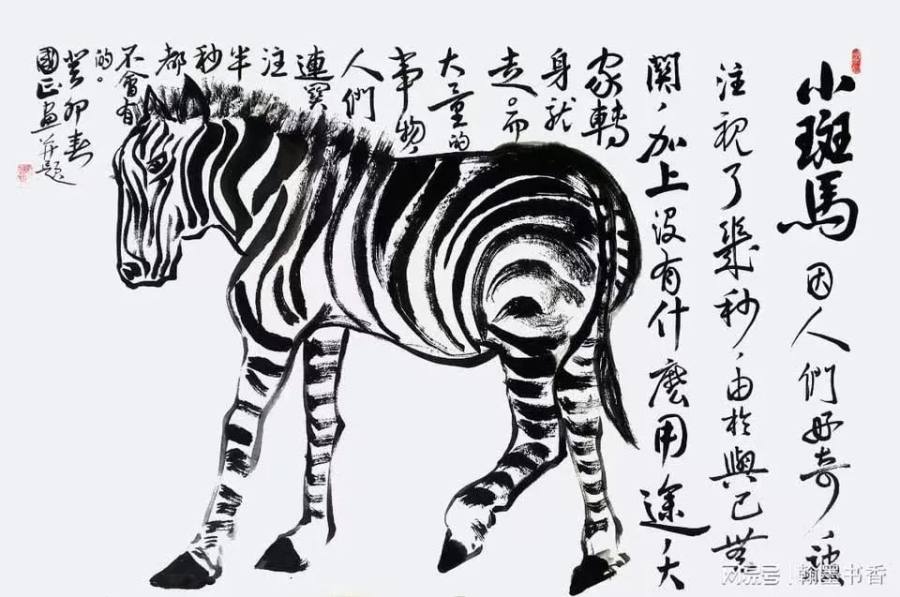 小斑馬 因人們好奇，被
注視了幾秒，由於與已無
関，加上没有什麼用途，大
家轉
身就
走。而
大量的
事物，
人們
連
注
半
秒
都
不會有
的。
癸卯春
國正画并題
搜狐号|翰墨书香